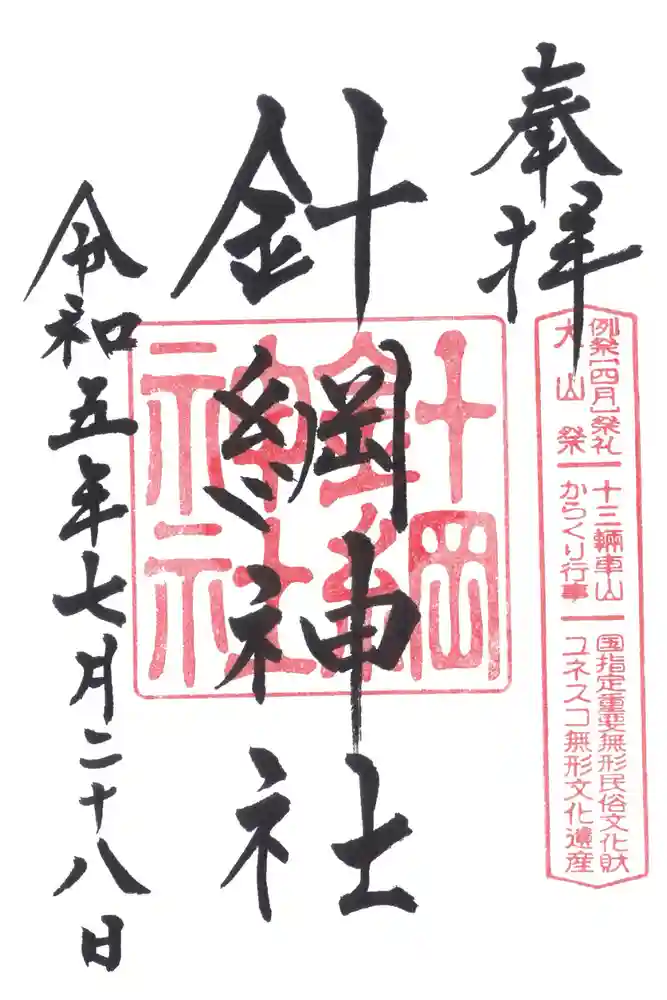 奉拝
例祭[四月]祭礼
犬山祭
十三輛車山
からくり行事
国指定重要無形民俗文化財
ユネスコ無形文化遺産
針綱神社
針綱神社
令和五年七月二十八日